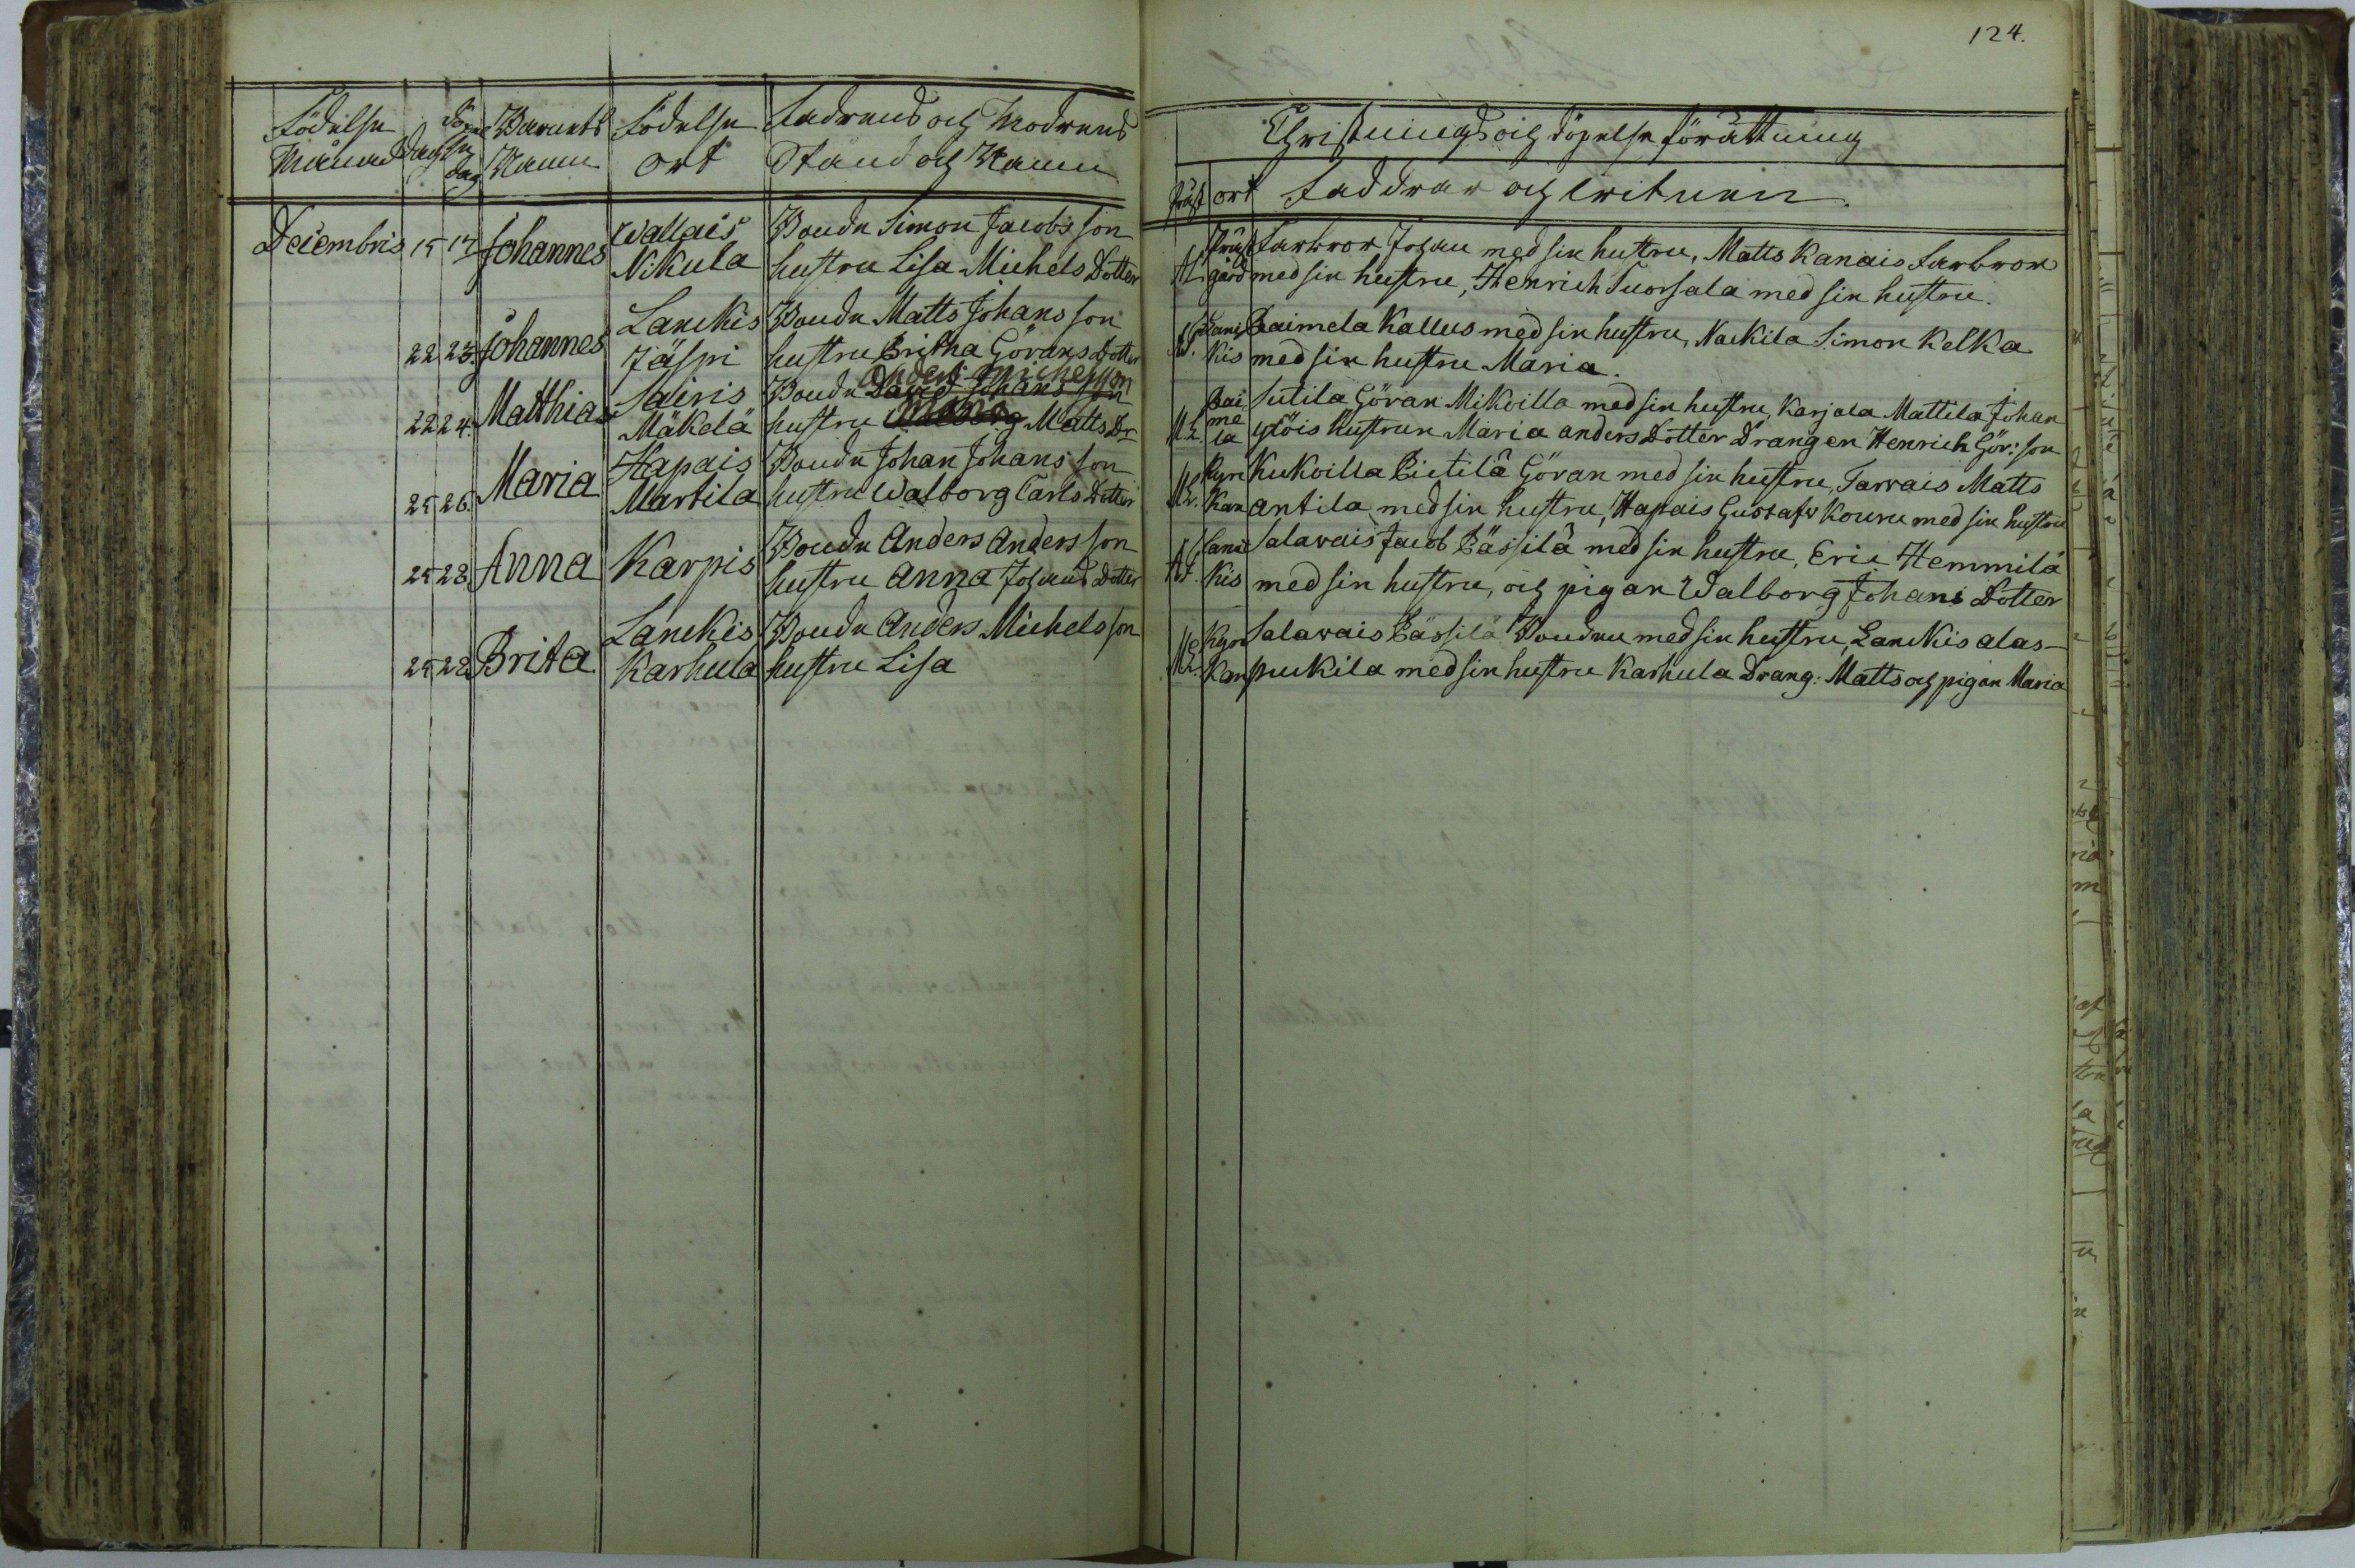 124.
Födelse Månad dag döpelse dag Barnets Namn Födelse ort Fadrens och Modrens Stånd och Namn
Christnings och döpelse förrättning
präst ort Faddrar och witnen.
Decembris 15 17 Johannes Wallais Bonde Simon Jacobs son
Nikula hustru Lisa Michels Dotter
Präst Farbror Johan med sin hustru, Matts Kanais farbror
gård med sin hustru, Henrich Tuorsala med sin hustru.
22 23 Johannes Lanckis Bonde Matts Johans son
Jäspi hustru Britha Görans Dotter
Lanc Raimela Kallus med sin hustru, Nackila Simon Kelka
kis med sin hustru Maria.
Anders Michelsson
22 24. Matthias Sairis Bonde David Johans son
Maria
Mäkelä hustru Walborg Matts Dr
Rai Sutila Göran Mikoilla med sin hustru, Karjala Mattila Johan
me
la ylöis hustrun Maria anders Dotter Drangen Henrich Gör: son
25 26. Maria Hapais Bonde Johan Johans son
Martila hustru Walborg Carls Dotter
Kyr Kukoilla Pietilä Göran med sin hustru, Tarvais Matts
kan antila med sin hustru, Hapais Gustafw Kouru med sin hustru
25 28 Anna Karpis Bonde Anders Anders son
hustru Anna Johans Dotter
Lanc Salavais Jacob Pässilä med sin hustru, Eric Hemmilä
kis med sin hustru, och pigan Walborg Johans Dotter
25 28 Brita Lanckis Bonde Anders Michels son
Karhula hustru Lisa
Kyr Salavais Pässilä Bonden med sin hustru, Lanckis alas-
kan puckila med sin hustru Karhula Drang: Matts och pigan Maria